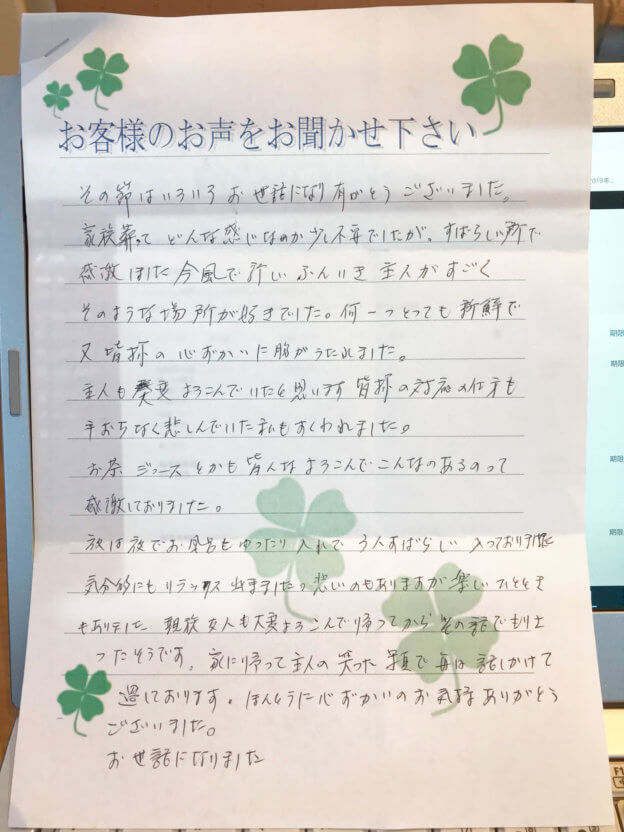 お客様のお声をお聞かせ下さい
その節はいろいろお世話になり有がとうございました。
家族葬って どんな感じなのか少し不安でしたが、すばらしい所で
感激しました 今風で新しいふんいき 主人がすごく
そのような場所が好きでした。何一つとっても新鮮で
又皆様の心ずかいに胸がうたれました。
主人も大変よろこんでいたと思います 皆様の対応の仕方も
手おちなく悲しんでいた私もすくわれました。
お茶 ジュースとかも皆んなよろこんでこんなのあるのって
感激しておりました。
夜は夜でお風呂もゆったり入れて すばらしい 入っておりました
気分的にもリラックス出来ました 悲いのもありますが楽しいひととき
もありました 親族 友人も大変よろこんで帰ってから その話でもり上
ったそうです。家に帰って主人の笑った顔で毎日話しかけて
過しております。ほんとうに心ずかいのお気持ありがとう
ございました。
お世話になりました
2019年...
期限
期限
期限
期限
F1